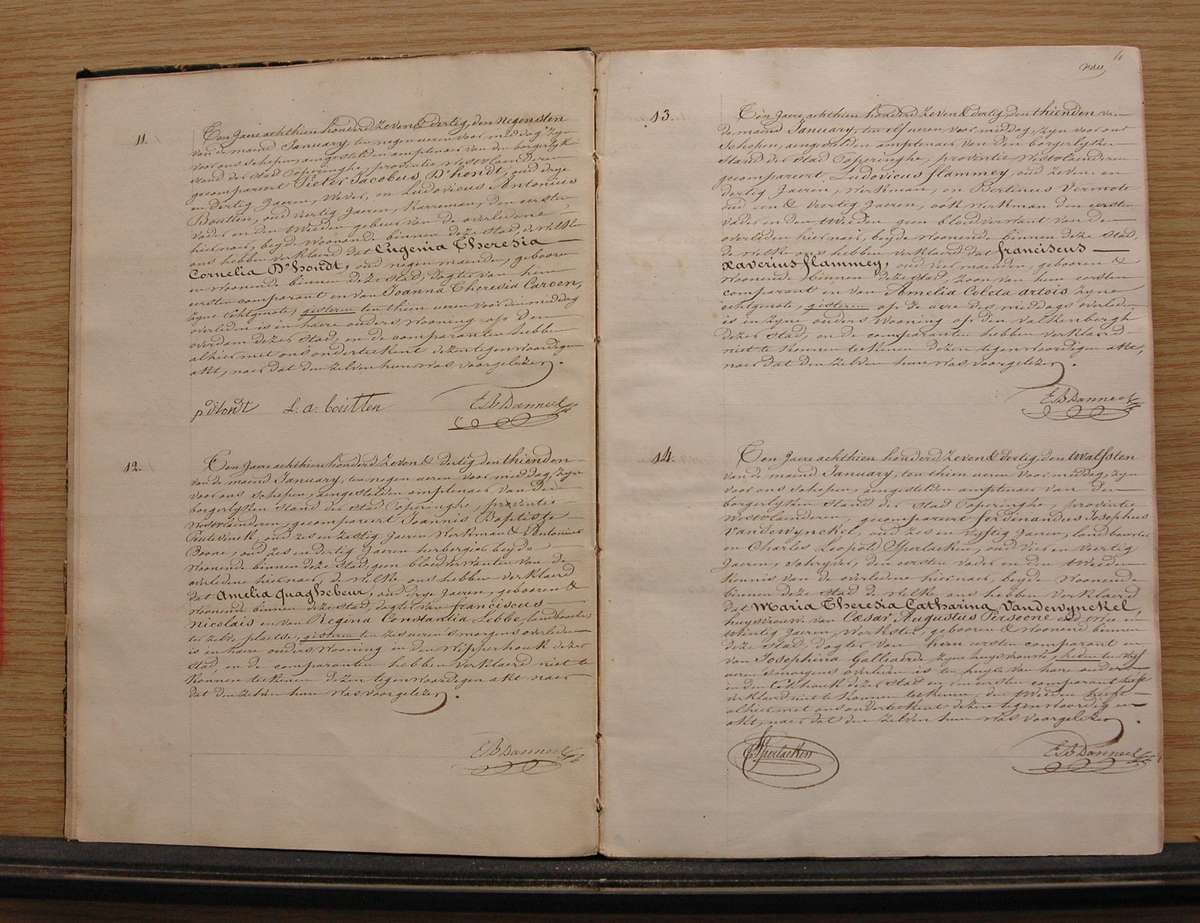 11.
Ten Jaere achthien honderd Zeven & dertig, den negensten
van de maend January, ten negen ueren voor middag, Zyn
voor ons Schepen, aengestelden amptenaer van den borgerlyken
Stand der Stad Poperinghe, provintie Westvlaenderen
gecompareert Pieter Jacobus D'hondt, oud drye
en dertig Jaeren, Wever, en Ludovicus Antonius
Boutten, oud veertig Jaeren, Karreman, den eersten
vader en den tweeden gebeur van de overledene
hier naer, beyde Woonende binnen deze Stad, de Welke
ons hebben verklaerd dat Eugenia Theresia
Cornelia D'hondt, oud negen maenden, gebooren
en woonende binnen deze Stad, dogter van hem
eersten comparant en van Joanna Theresia Caroen,
Zyne Echtgenote, gisteren ten thien ueren voor den middag
overleden is in haere ouders Wooning op den
overdam dezer Stad, en de comparanten hebben
alhier met ons onderteekent dezen tegenwoordigen
akt, naer dat den Zelven hun Was voorgelezen.
p d'hondt L. a. boutten E. B. Danneel
12.
Ten Jaere achthien honderd Zeven & dertig, den thienden
van de maend January, ten negen ueren voor middag, Zyn
voor ons Schepen, aengestelden amptenaer van den
borgerlyken Stand der Stad Poperinghe, provintie
Westvlaenderen, gecompareert Joannis Baptiste
oud zes en zestig Jaeren Werkman & Antonius
Boone, oud zes en dertig Jaeren herbergier beyde
Woonende binnen deze Stad, geen bloedverwanten van de
overledene hier naer, de Welke ons hebben verklaerd
dat Amelia Quaghebeur, oud drye Jaeren, gebooren &
Woonende binnen deze Stad, dogter van franciscus
Nicolais en van Regina Constantia Lebbe, landbouwers
te Zelve plaetse, gisteren ten zes ueren s'morgens overleden
is in haere ouders Wooning in den Wipperhoek dezer
Stad, en de comparanten hebben verklaerd niet te
konnen teekenen dezen tegenwoordigen akt naer
dat den Zelven hun Was voorgelezen.
E. B. Danneel
13.
Ten Jaere achthien honderd Zeven & dertig, den thienden van
de maend January, ten elf ueren voor middag, Zyn voor ons
Schepen, aengestelden amptenaer van den borgerlyken
Stand der Stad Poperinghe, provintie Westvlaenderen
gecompareert, Ludovicus flammey, oud zeven en
dertig Jaeren, Werkman, en Bertinus Vermote
oud een & veertig Jaeren, ook Werkman den eersten
vader en den tweeden geen bloedverwant van den
overleden hier naer, beyde Woonende binnen deze Stad,
de Welke ons hebben verklaerd dat franciscus
Xaverius flammey, oud vier maenden, gebooren &
Woonende binnen deze Stad Zoon van hem eersten
comparant en van Amelia Coleta artois Zyne
echtgenote, gisteren op de uere des middags overleden
is in Zyne ouders Wooning op den Valkenbergh
dezer Stad, en de comparanten hebben verklaerd
niet te konnen teekenen dezen tegenwoordigen akt,
naer dat den Zelven hun Was voorgelezen.
E. B. Danneel
14.
Ten Jaere achthien honderd Zeven & dertig, den twalfsten
van de maend January, ten thien ueren voor middag, Zyn
voor ons Schepen, aengestelden amptenaer van den
borgerlyken Stand der Stad Poperinghe, provintie
Westvlaenderen, gecompareert ferdenandus Josephus
Vandewynckel, oud zes en vyftig Jaeren, landbouwer
en Charles Leopold Spetaelken, oud vier en veertig
Jaeren, Schryver, den eersten vader en den tweeden
kennis van de overledene hier naer, beyde Woonende
binnen deze Stad de Welke ons hebben verklaerd
dat Maria Theresia Catharina Vandewynckel,
huysvrouw van Cæsar Augustus Persoone oud
twintig Jaeren, Werkster, gebooren & Woonende binnen
deze Stad, dogter van hem eersten comparant en
van Josephina Galliaerde Zyne huysvrouw, heden ten vyf
ueren s'morgens overleden is ten huyze van haere ouders
in den Eekhoek dezer Stad en eersten comparant heeft
verklaerd niet te konnen teekenen, den tweeden heeft
alhier met ons onderteekent dezen tegenwoordigen
akt, naer dat den Zelven hun Was voorgelezen.
E. B. Danneel